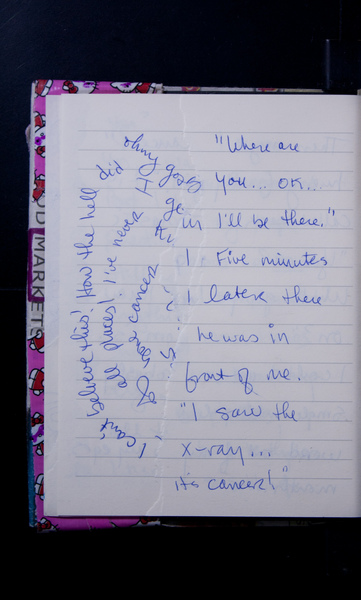 "Where are
you... OK...
I'll be there."
Five minutes
later there
he was in
front of me.
"I saw the
x-ray...
it's cancer!"
"I can't believe this! How the hell did
all places! I've never
cancer
ohmy gosh
D MARKETS